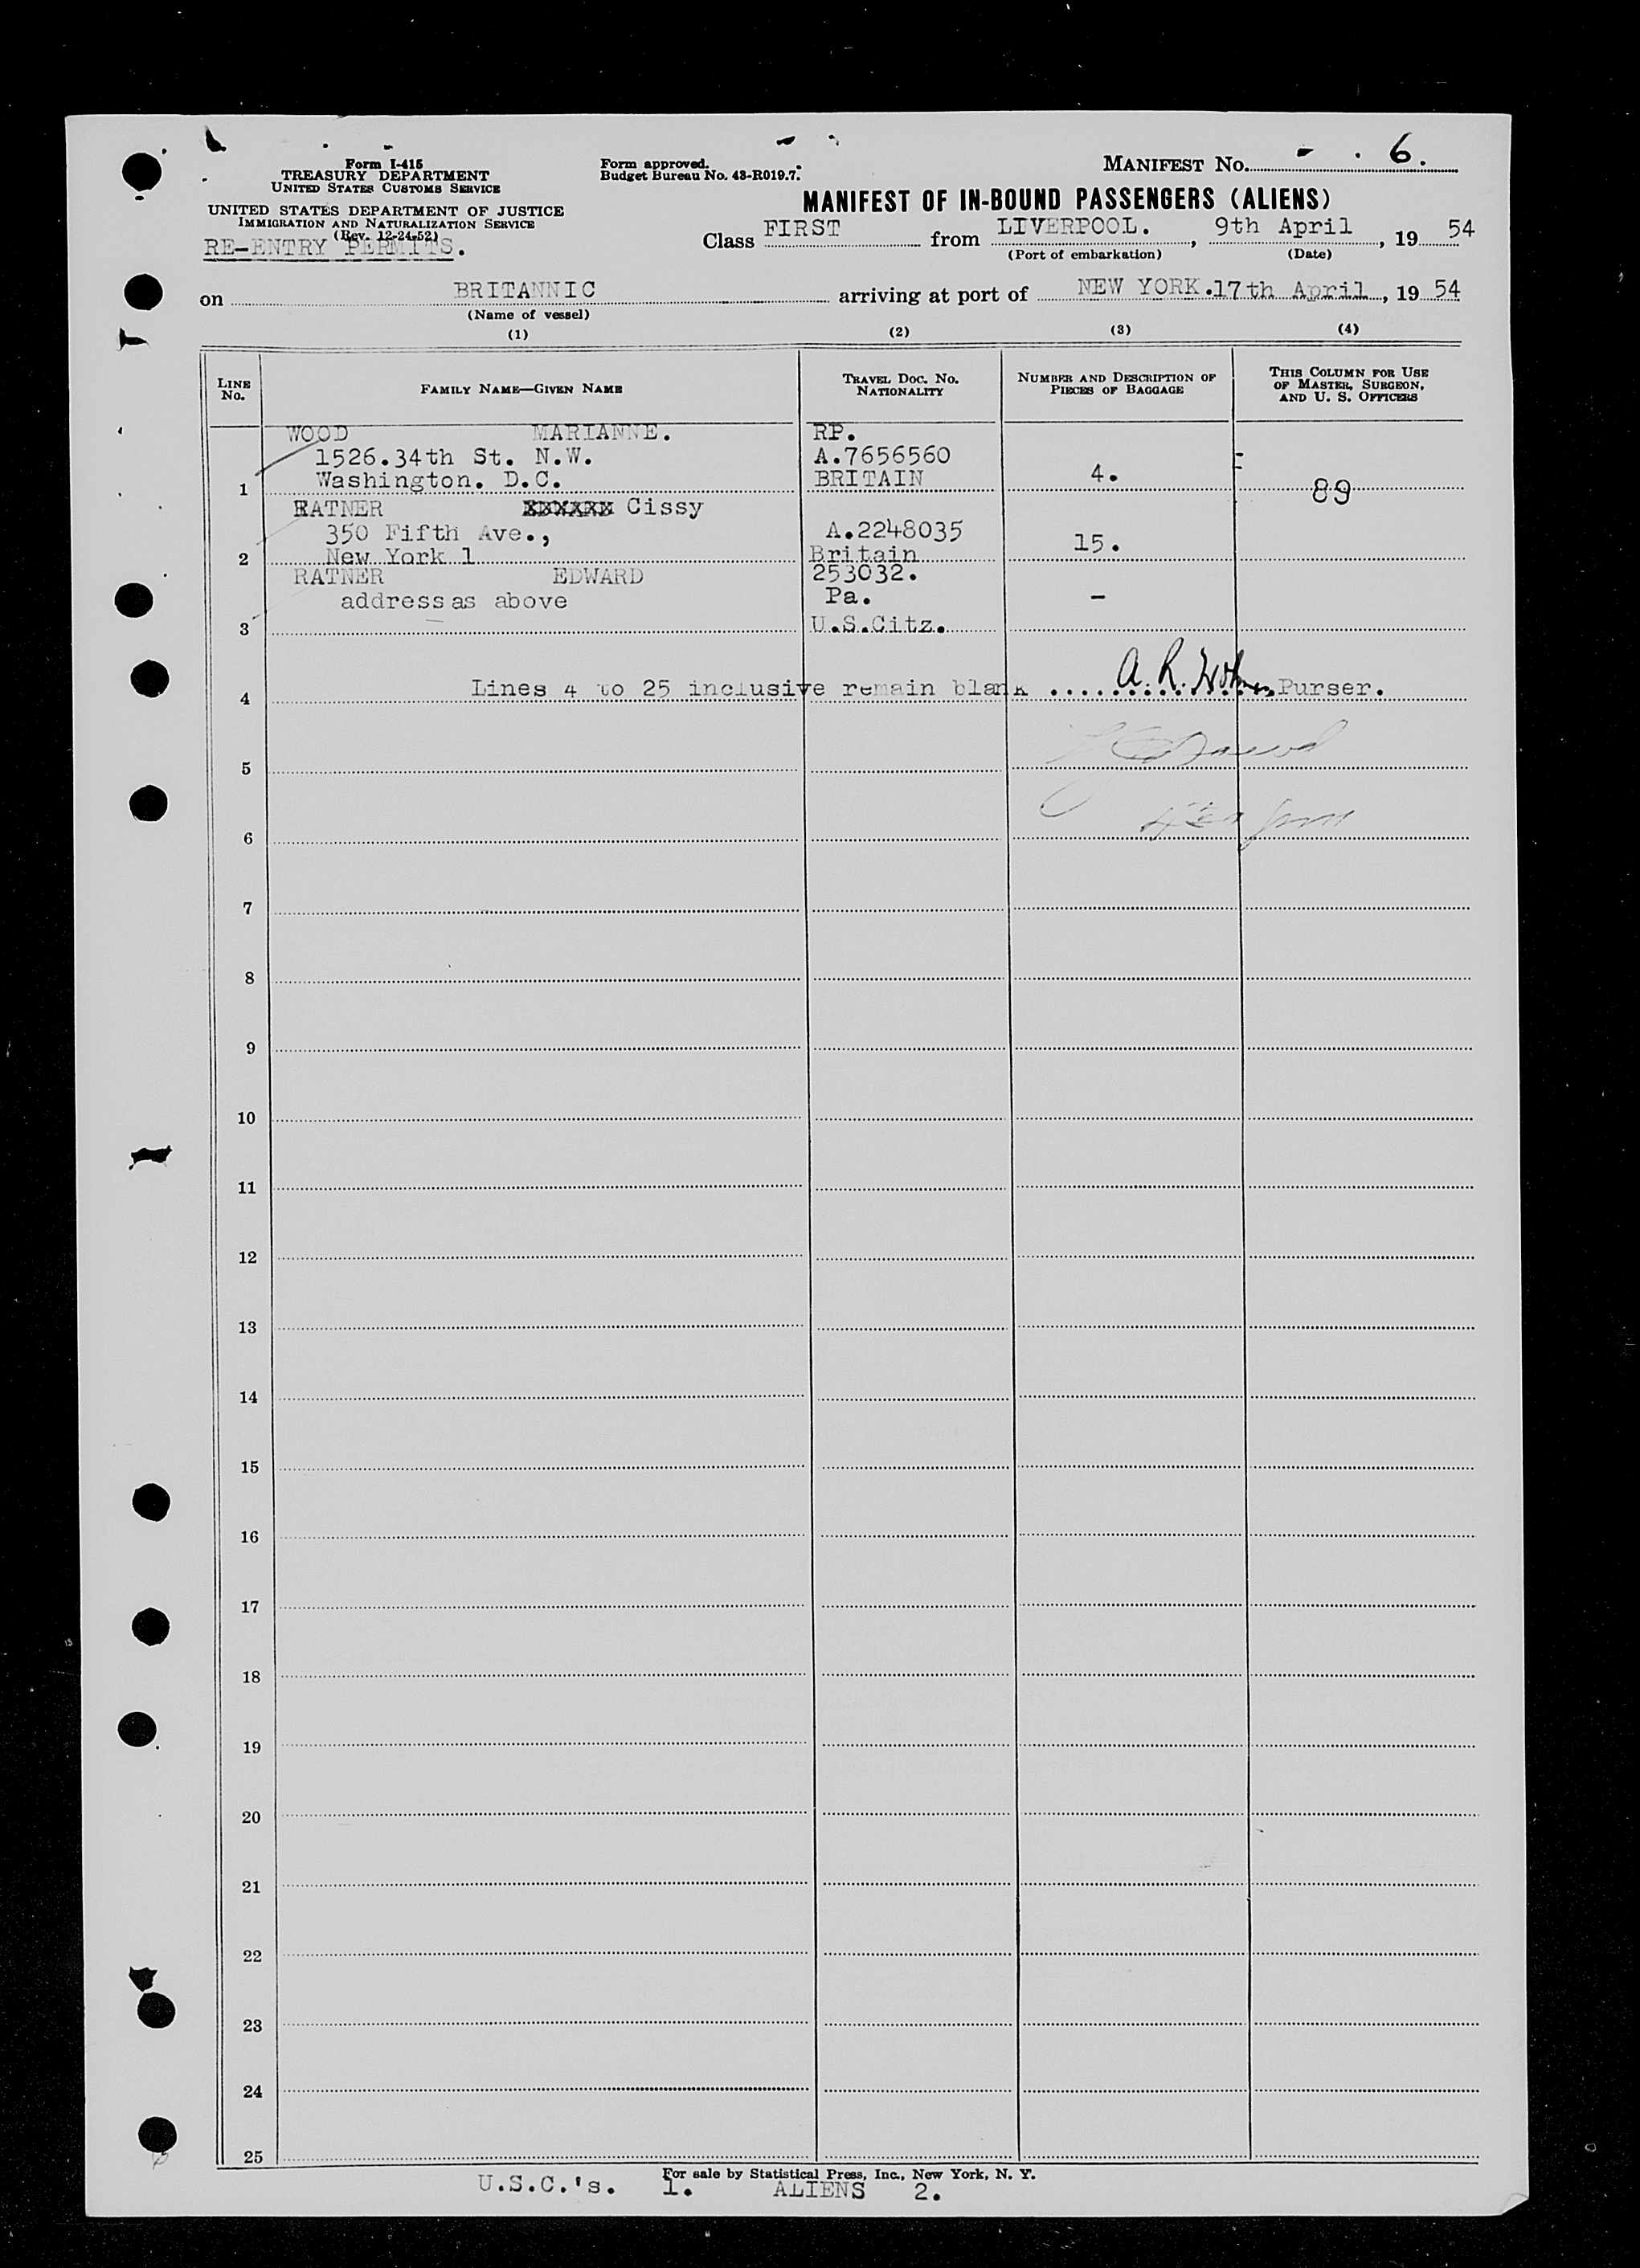 Form I-415
TREASURY DEPARTMENT
UNITED STATES CUSTOMS SERVICE
UNITED STATES DEPARTMENT OF JUSTICE
IMMIGRATION AND NATURALIZATION SERVICE
(Rev. 12-24-52)
RE-ENTRY PERMITS.
Form approved.
Budget Bureau No. 43-R019.7.
MANIFEST No. 6.
MANIFEST OF IN-BOUND PASSENGERS (ALIENS)
Class FIRST from LIVERPOOL. , 9th April , 19 54
(Port of embarkation) (Date)
on BRITANNIC arriving at port of NEW YORK. 17th April , 19 54
(Name of vessel)
(1) (2) (3) (4)
LINE No. FAMILY NAME—GIVEN NAME TRAVEL DOC. No. NATIONALITY NUMBER AND DESCRIPTION OF PIECES OF BAGGAGE THIS COLUMN FOR USE OF MASTER, SURGEON, AND U. S. OFFICERS
WOOD MARIANNE. RP.
1526.34th St. N.W. A.7656560
1 Washington. D.C. BRITAIN 4. 89
RATNER Cissy
350 Fifth Ave., A.2248035
2 New York 1 Britain 15.
RATNER EDWARD 253032.
address as above Pa. –
3 U.S.Citz.
4 Lines 4 to 25 inclusive remain blank ........ A. R. Purser.
5
6
7
8
9
10
11
12
13
14
15
16
17
18
19
20
21
22
23
24
25
For sale by Statistical Press, Inc., New York, N. Y.
U.S.C.'s. 1. ALIENS 2.